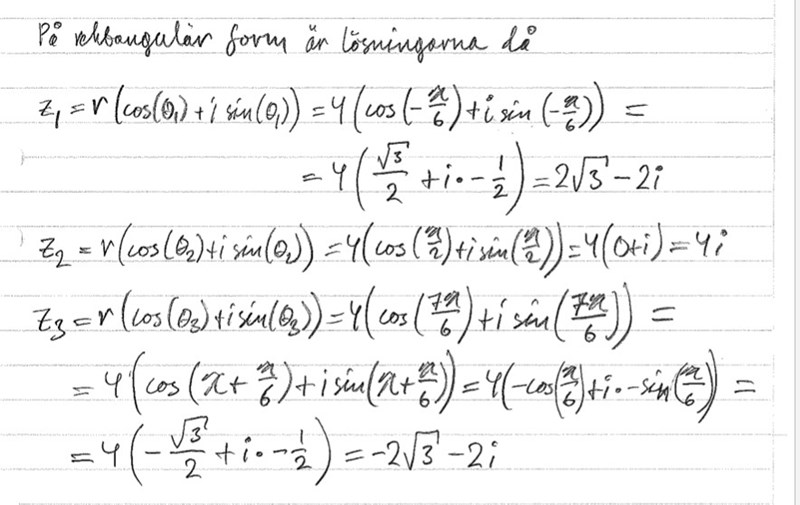 På rektangulär form är lösningarna då
z₁ = r(cos(θ₁) + i sin(θ₁)) = 4(cos(-π/6) + i sin(-π/6)) =
= 4(√3/2 + i·-1/2) = 2√3 - 2i
z₂ = r(cos(θ₂) + i sin(θ₂)) = 4(cos(π/2) + i sin(π/2)) = 4(0+i) = 4i
z₃ = r(cos(θ₃) + i sin(θ₃)) = 4(cos(7π/6) + i sin(7π/6)) =
= 4(cos(π + π/6) + i sin(π + π/6)) = 4(-cos(π/6) + i·-sin(π/6)) =
= 4(-√3/2 + i·-1/2) = -2√3 - 2i